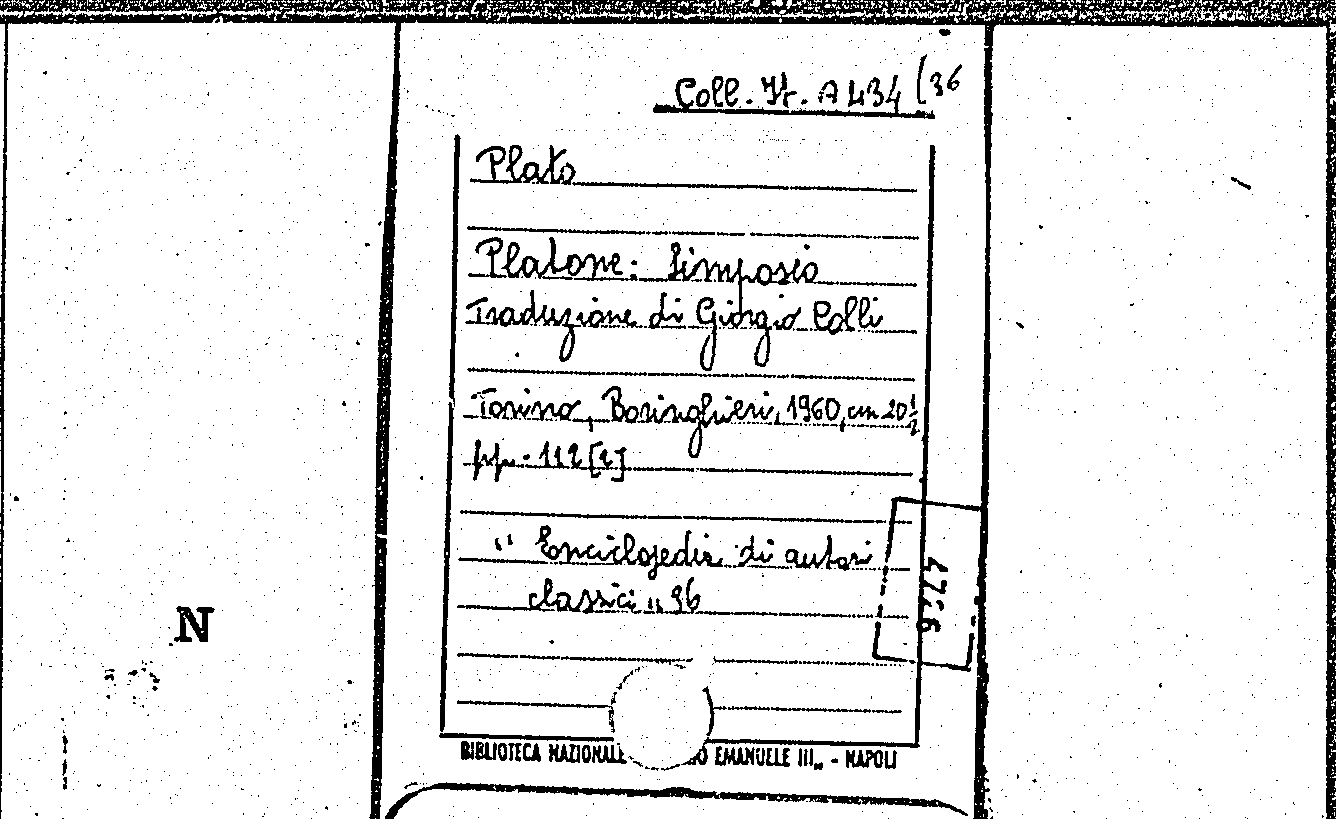 Coll. It. A 434 (36
Plato
Platone: Simposio
Traduzione di Giorgio Colli
Torino, Boringhieri, 1960, cm 20½
pp. 112 [2]
" Enciclopedia di autori
classici " 36
BIBLIOTECA NAZIONALE EMANUELE III„ - NAPOLI
N